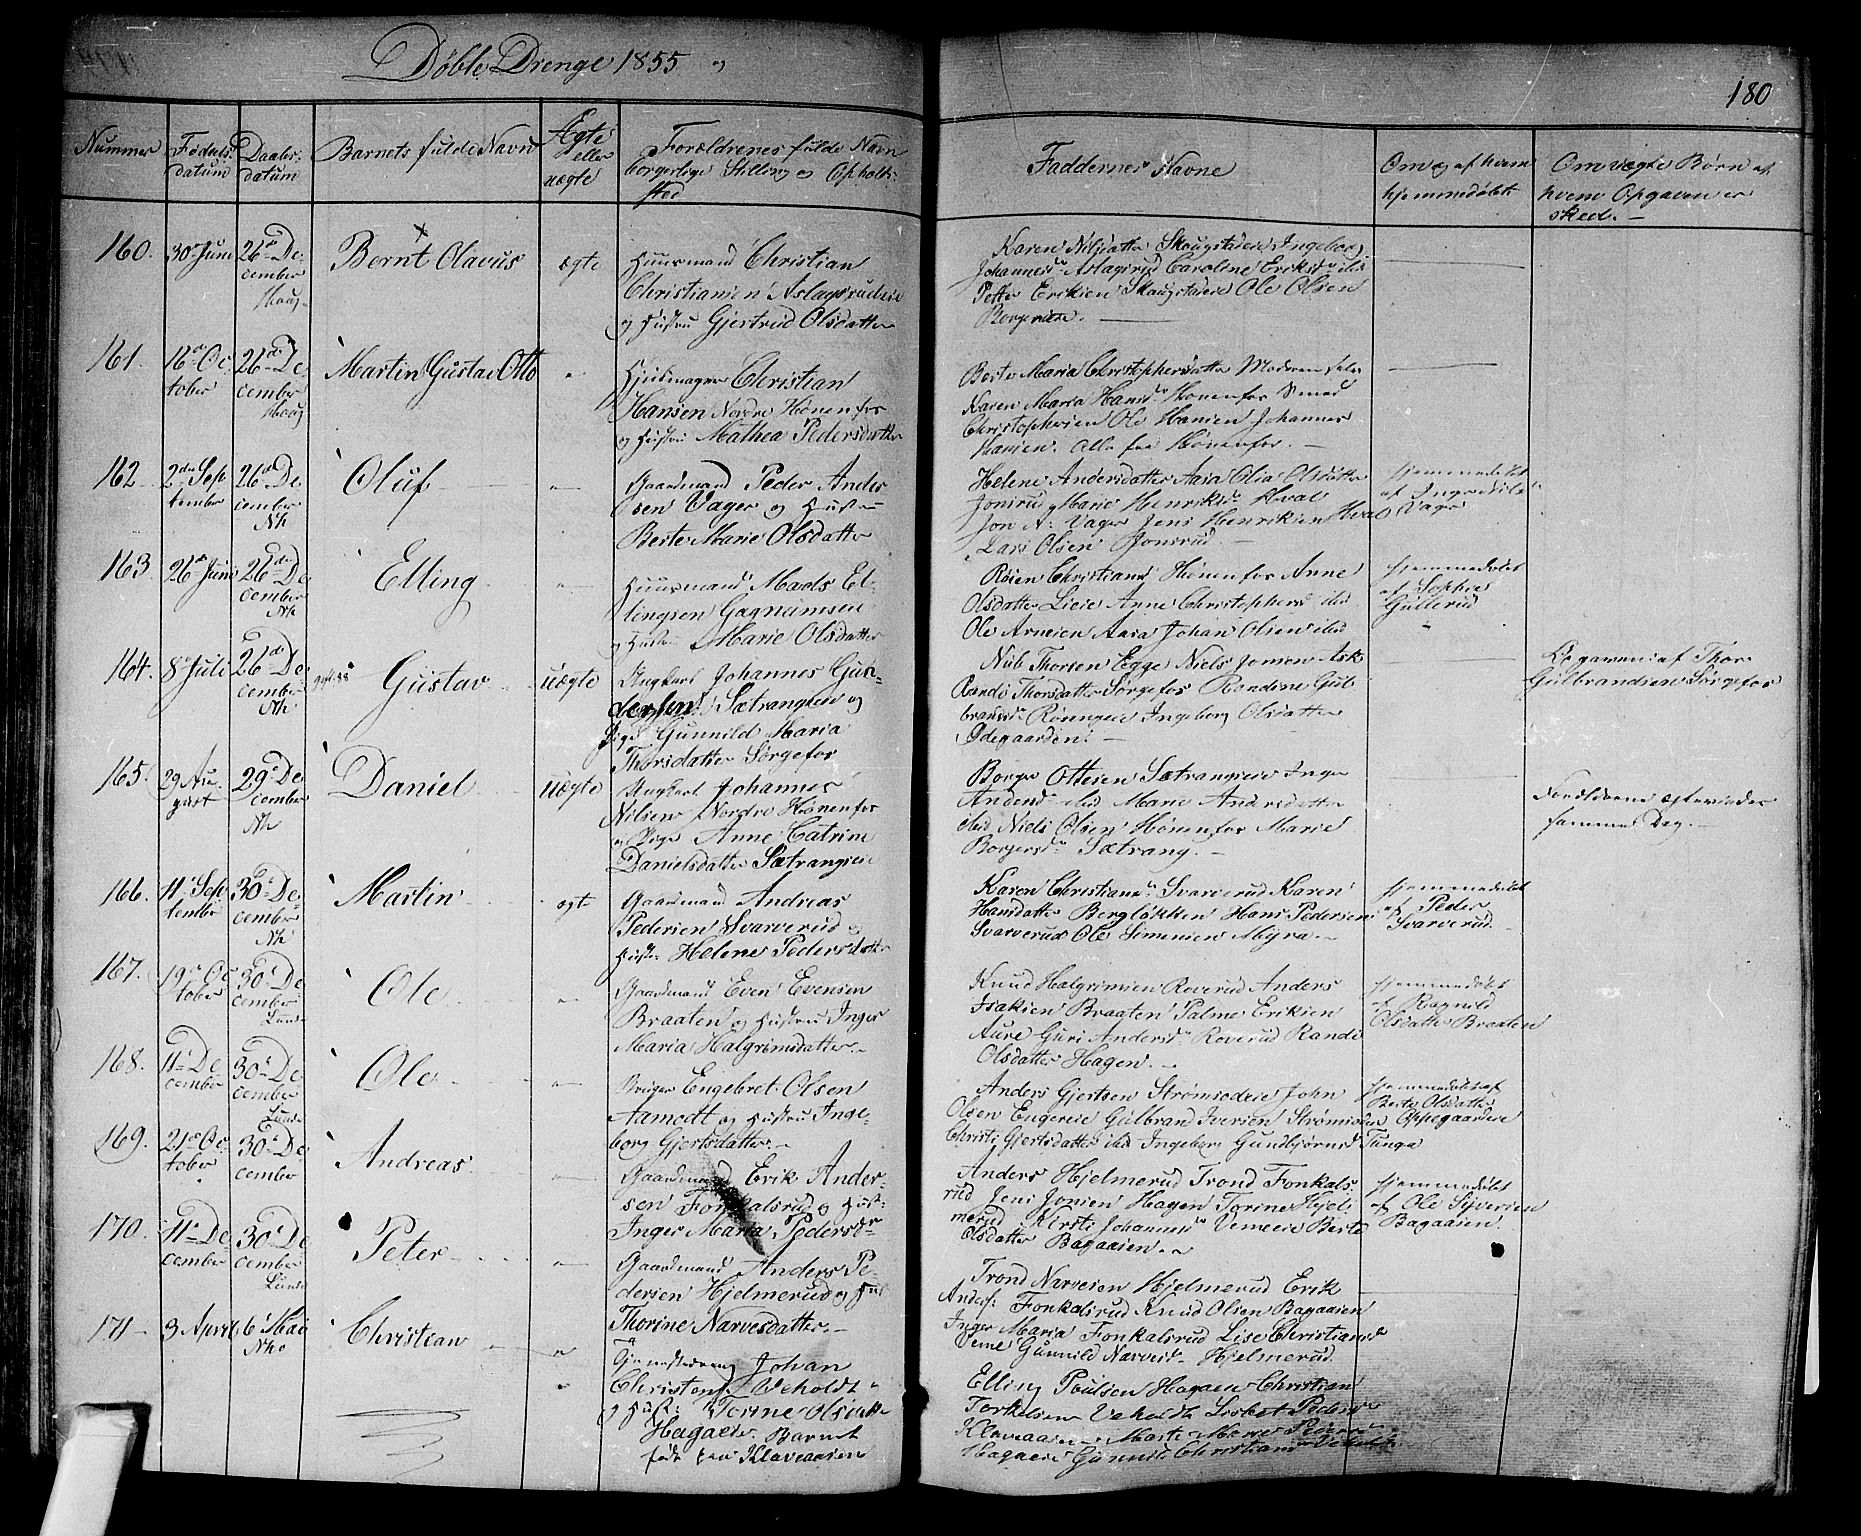 Døbte Drenge 1855
180
Nummer
Fødsels datum
Daabs datum
Barnets fulde Navn
Ægte eller uægte
Forældrenes fulde Navn
borgerlige Stilling og Opholds
sted
Faddernes Navne
Om og af hvem
hjemmedøbt
Om uægte Børn af
hvem Opgaven er
skeed.-
160. 30 Juni 26de December Bernt Olavus ægte
Huusmand Christian
Christiansen Aslagsrudeie
og Hustru Gjertrud Olsdatter
Karen Nilsdatter Skougstadeie Ingeborg
Johannesdr Aslagsrud Caroline Eriksdr ibid
Petter Eriksen Skaugstadeie Ole Olsen
Borgereie.
161. 16de October 26de December Martin Gustav Otto
Hjulmager Christian
Hansen Nordre Hønenfos
og Hustru Mathea Pedersdatter
Berte Maria Christophersdatter Moderen selv
Karen Maria Hansdr Hønenfos Smed
Christophersen Ole Hansen Johannes
Hansen. Alle fra Hønenfos.-
162 2den September 26de December Nh Oluf
Gaardmand Peder Ander
sen Vager og Hustru
Berte Marie Olsdatter
Helene Andersdatter Aasa Olia Olsdatter
Jonsrud Marie Henriksdr Hval
Jon A: Vager Jens Henriksen Hval
Lars Olsen Jonsrud.
hjemmedøbt
af Inger Nils
Vager
163. 26de Juni 26de December Nh Elling
Huusmand Mads El
lingsen Gagnumseie
og Hustru Marie Olsdatter
Christians Hønenfos Anne
Olsdatter Lieie Anne Christophersd ibid
Ole Arnesen Aasa Johan Olsen ibid
hjemmedøbt
af Sophie
Gullerud
164. 8de Juli 26de December Nh Gustav uægte
Ungkarl Johannes Gun-
dersen Sætrangseie og
Pige Gunnild Maria
Thorsdatter Sørgefos
Nub Thorsen Egge Niels Jonsen Ask
Randi Thorsdatter Sørgefos Randine Gul
brandsdr Røsengeie Ingeborg Olsdatter
Ødegaarden.-
Opgaven af Thor
Gulbrandsen Sørgefos
165. 29 August 29de December Nh Daniel uægte
Ungkarl Johannes
Nilsen Nordre Hønenfos
og Pige Anne Catrine
Danielsdatter Sætrangseie
Borger Ottesen Sætrangseie Inger
Andersdr ibid Marie Andersdatter
ibid Niels Olsen Hønenfos Marie
Borgersdr Sætrang.-
Forældrene ægteviedes
samme Dag.-
166. 11te September 30de December Nh Martin ægte
Gaardmand Andreas
Pedersen Svarverud og
Hustru Helene Pedersdatter
Karen Christiansdr Svarverud Karen
Hansdatter Bergløkken Hans Pedersen
Svarverud Ole Simensen Myra.-
hjemmedøbt
af Peder
Svarverud.
167. 19de October 30de December Ole
Gaardmand Even Evensen
Braaten og Hustru Inger
Maria Halgrimsdatter.-
Knud Halgrimsen Roverud Anders
Isaksen Braaten Palme Eriksen
Aure Guri Andersdr Roverud Randi
Olsdatter Hagen.-
hjemmedøbt
af Ragnild
Olsdatter Braaten
168. 11te December 30de December Ole
Bruger Engebret Olsen
Aamodt og Hustru Inge
borg Gjertsdatter.-
Anders Gjertsen Strømsodeie John
Olsen Eugereie Gulbrand Iversen Strømsodeie
Christi Gjertsdatter ibid Ingeborg Gundbjørnsd Tunga
hjemmedøbt af
Berte Olsdatter
Oppegaardeie
169. 21de October 30de December Andreas
Gaardmand Erik Ander-
sen Fonkalsrud og Hust:
Inger Maria Pedersdr
Anders Hjelmerud Trond Fonkals
rud Jens Jonsen Hagen Torine Hjel
merud Kirsti Johannesdr Vemeeie Berte
Olsdatter Bagaasen.-
hjemmedøbt
af Ole Syversen
Bagaasen.
170. 11te December 30de December Peter
Gaardmand Anders Pe-
dersen Hjelmerud og Hust
Thorine Narvesdatter.-
Trond Narvesen Hjelmerud Erik
Anders: Fonkalsrud Knud Olsen Bagaasen
Inger Maria Fonkalsrud Lise Christiansdr
Veme Gunnild Narvesdr Hjelmerud
171- 3 April 6te Mai Christian
Tjenestedreng Johan
Christens. Veholdt
og Hust: Torine Olsdatter
Hagaeie. Barnet
født paa Klaveaasen
Elling Poulsen Hagaeie Christian
Torkelsen Veholdt Lisbet Peders
Klaveaasen Marte Marie Peders
Hagaeie Gunnild Christiansdr